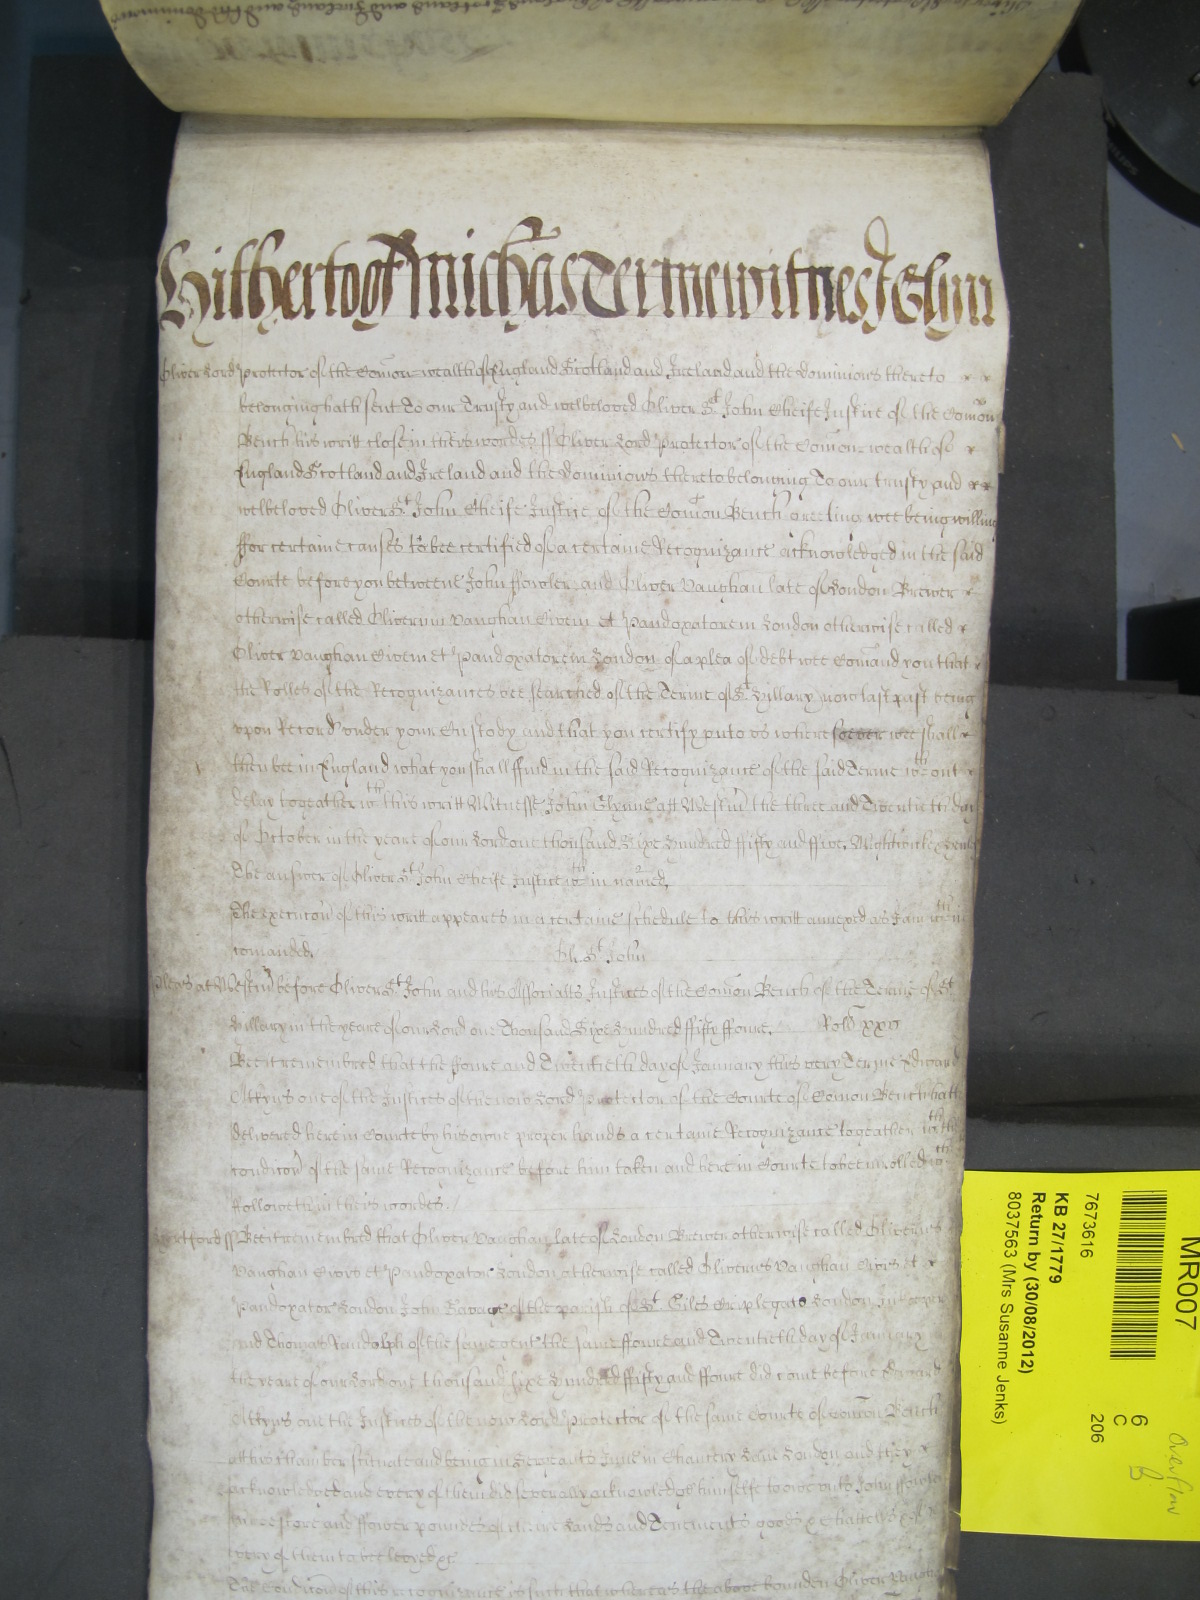 Hitherto of Michas Terme witnes J Glyn
Oliver Lord Protector of the Comon wealth of England Scotland and Ireland and the dominions thereto
belonging hath sent To our Trusty and welbeloved Oliver St John Cheife Justice of the Comon
Bench his writt close in theis wordes ss Oliver Lord Protector of the Comon wealth of
England Scotland and Ireland and the Dominions thereto belonging To our trusty and
welbeloved Oliver St John Cheife Justice of the Comon Bench greeting wee being willing
ffor certaine causes to bee certified of a certaine Recognizance acknowledged in the said
Courte before you betweene John ffowler and Oliver Vaughan late of London Brewer
otherwise called Oliverum Vaughan Civem et Pandoxatorem London otherwise called
Oliver Vaughan Civem et Pandoxatorem London of a plea of debt wee Comaund you that
the Rolles of the Recognizances bee searched of the Terme of St Hillary now last past being
upon Record under your Custody and that you certify unto us wheresoever wee shall
then bee in England what you shall ffind in the said Recognizance of the said Terme wth out
delay togeather wth this writt Witnesse John Glynne att Westm the three and Twentieth day
of October in the yeare of our Lord one thousand Sixe Hundred ffifty and ffive
The answer of Oliver St John Cheife Justice wth in named
The execucon of this writt appeares in a certaine schedule to this writt annexed as I am wthin
comanded. Ol. St John
Pleas at Westm before Oliver St John and his Associatts Justices of the Comon Bench of the Terme of St
Hillary in the yeare of our Lord one Thousand Sixe Hundred ffifty ffoure. Roll
Bee it remembred that the ffoure and Twentieth day of January this very Terme Edward
Atkyns one of the Justices of the now Lord Protector of the Courte of Comon Bench hath
delivered here in Courte by his owne proper hands a certaine Recognizance togeather wth the
condicon of the same Recognizance before him taken and here in Courte to bee inrolled wch
followeth in theis wordes /
Hertford ss Bee it remembred that Oliver Vaughan late of London Brewer otherwise called Oliverus
Vaughan Civis et Pandoxator London otherwise called Oliverus Vaughan Civis et
Pandoxator London John Savage of the parish of St Giles Criplegate London
and Thomas Randolph of the same gent the same ffoure and Twentieth day of January
the yeare of our Lord one thousand sixe Hundred ffifty and ffoure did come before Edward
Atkyns one the Justices of the now Lord Protector of the same Courte of Comon Bench
at his chamber scituate and being in Serjeants Inne in Chancery Lane London and they
acknowledged and every of them did severally acknowledge himselfe to owe unto John ffowler
score and ffower poundes of theire Lands and Tenements goods & Chattells
every of them to bee levyed &c
The Condicon of this recognizance is such that whereas the above bounden Oliver Vaughan
MR007
7673616
KB 27/1779
Return by (30/08/2012)
8037563 (Mrs Susanne Jenks)
6
C
206